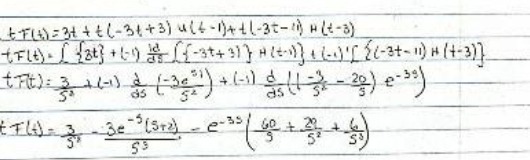 tF(t)=3t + t(-3t+3) u(t-1)+t(-3t-11) H(t-3)
tF(t)= ∫ {3t} + (-1) 1d/ds ∫{(-3t+3)} H(t-1)} + (-1)' ∫ {(-3t-11) H(t-3)}
tF(t)= 3/s² + (-1) d/ds (-3e^-s1/s²) + (-1) d/ds ((-3/s² - 20/s) e^-3s)
tF(t)= 3/s² - 3e^-s(s+2)/s³ - e^-3s (60/s + 29/s² + 6/s³)